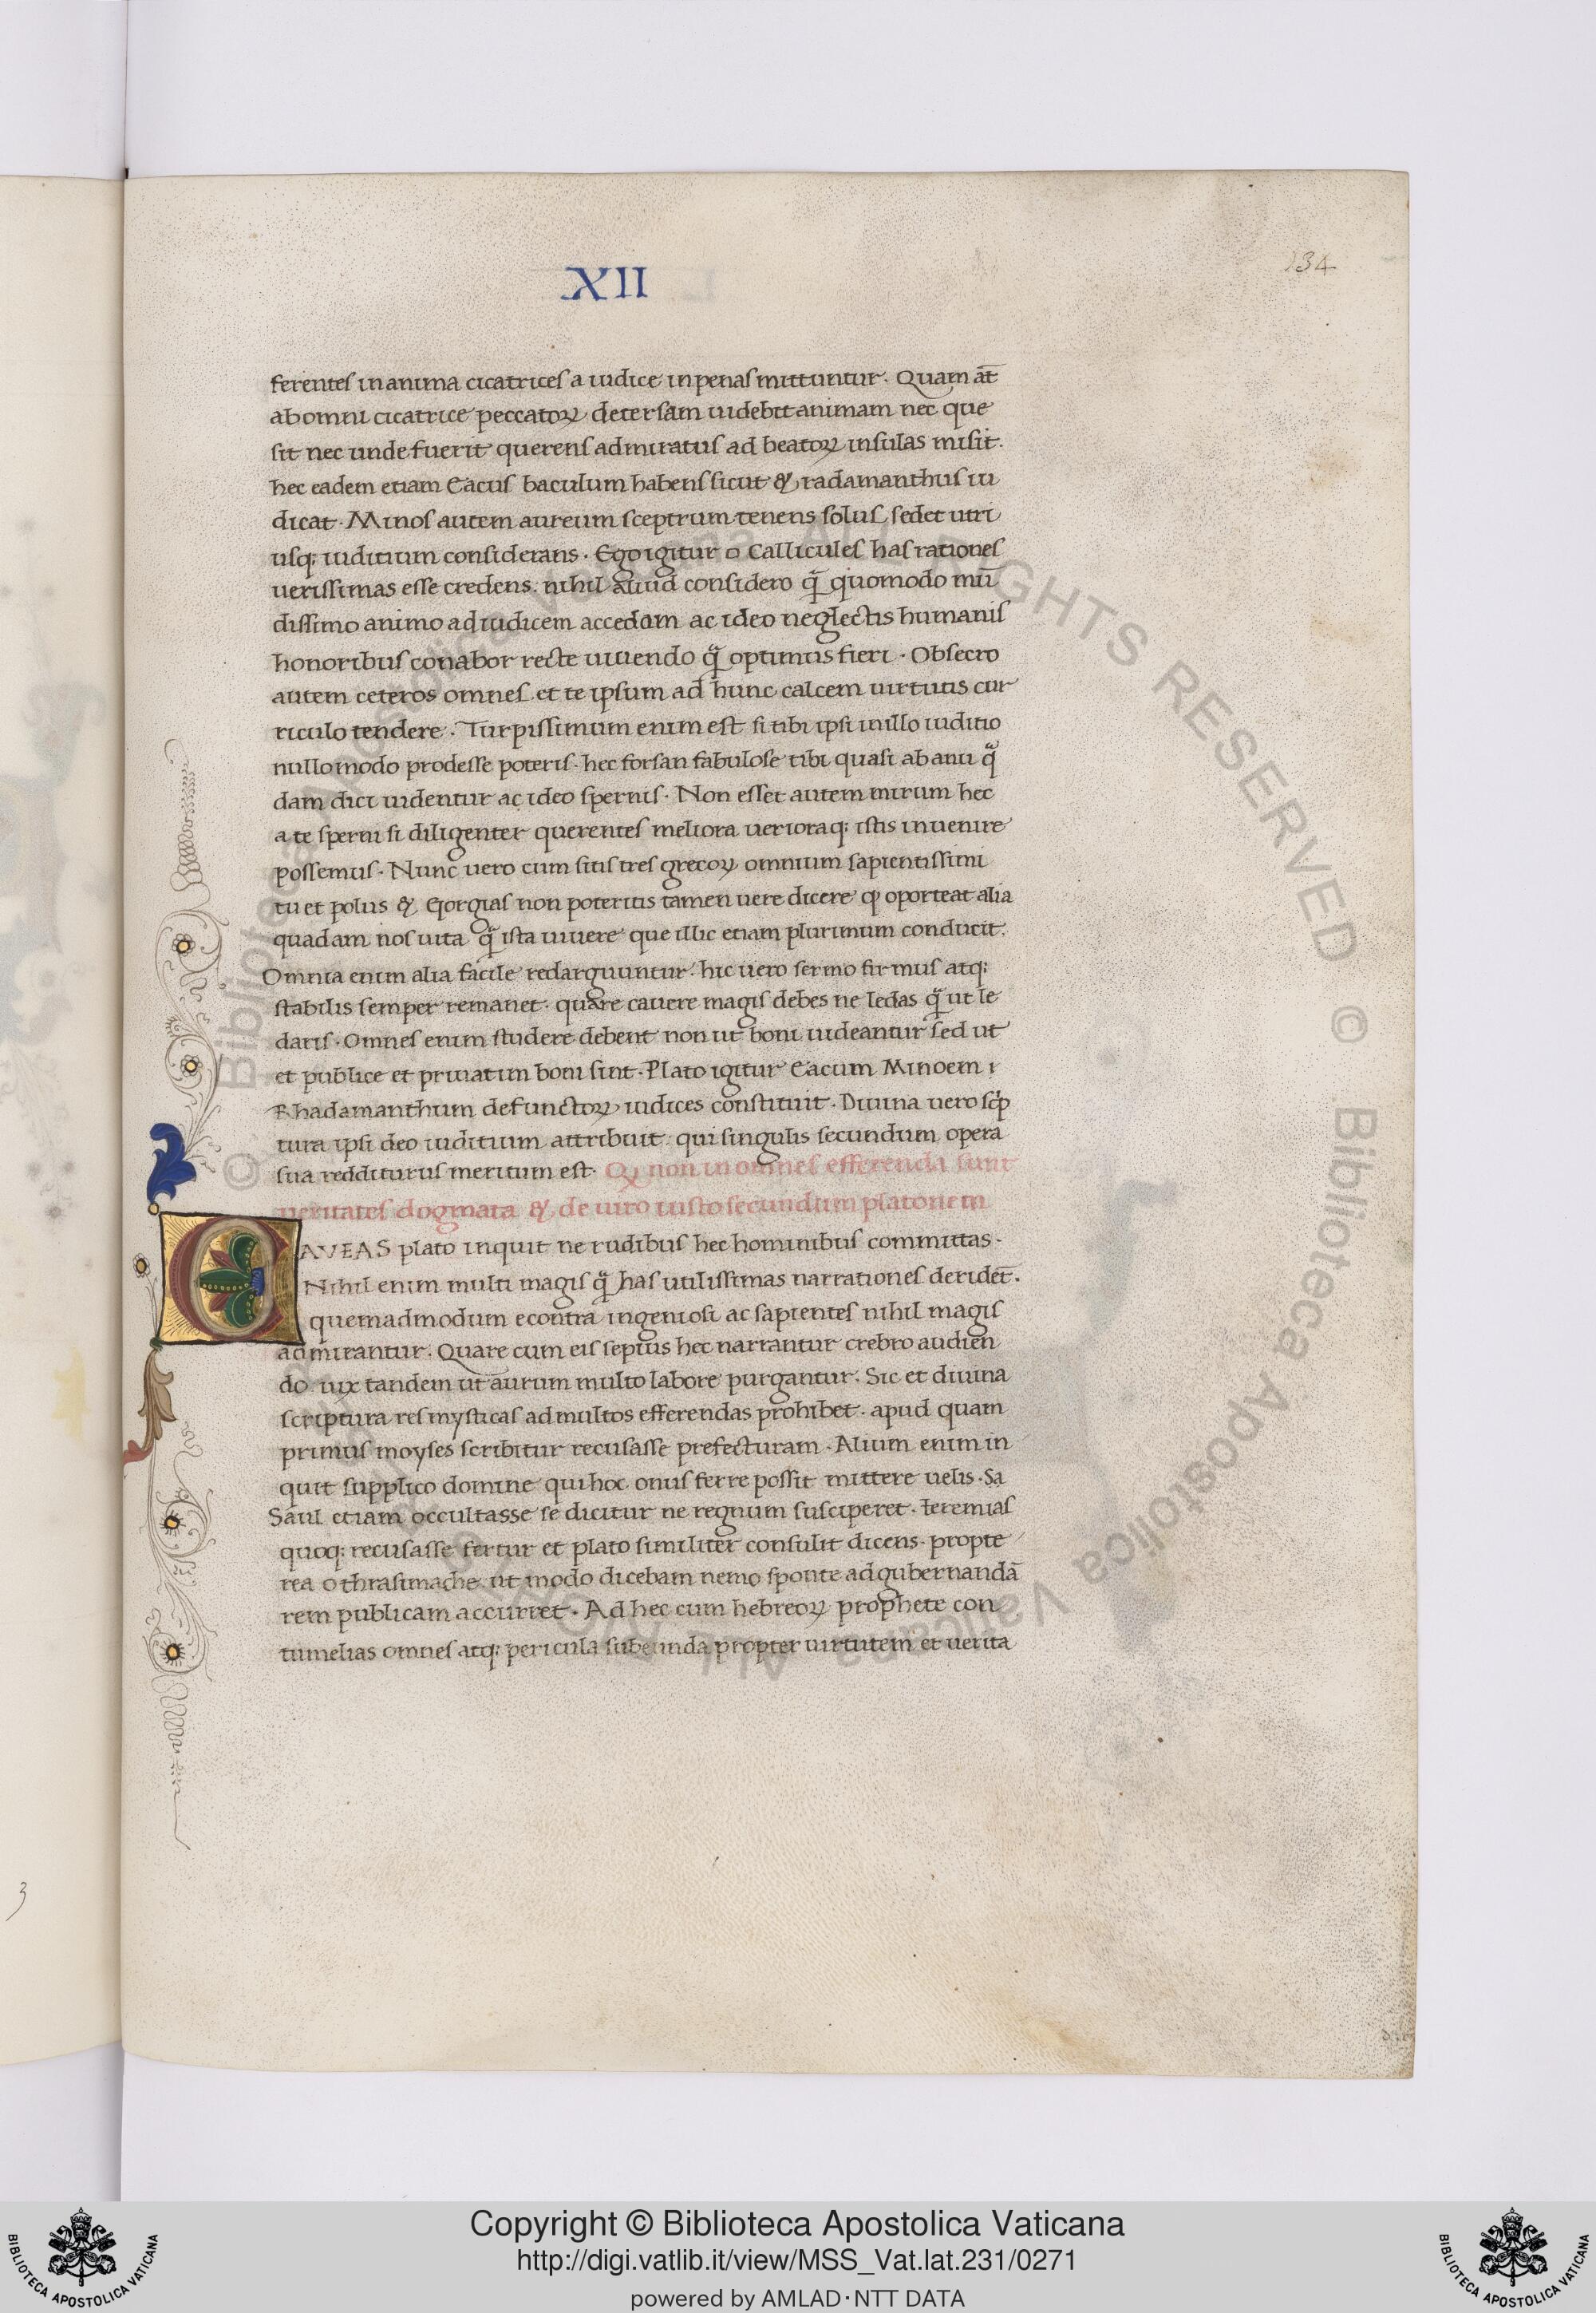 XII
134
ferentes in anima cicatrices a iudice in penas mittuntur. Quam at̄
ab omni cicatrice peccatoꝝ detersam uidebit animam nec que
sit nec unde fuerit querens admiratus ad beatoꝝ insulas misit.
hec eadem etiam Eacus baculum habens sicut & radamanthus iu
dicat. Minos autem aureum sceptrum tenens solus sedet utri
usq; iuditium considerans. Ego igitur o Callicules has rationes
uerissimas esse credens: nihil aliud considero q̃ quomodo mū
dissimo animo ad iudicem accedam ac ideo neglectis humanis
honoribus conabor recte uiuendo q̃ optimus fieri. Obsecro
autem ceteros omnes et te ipsum ad hunc calcem uirtutis cur
riculo tendere. Turpissimum enim est si tibi ipsi in illo iuditio
nullo modo prodesse poteris. hec forsan fabulose tibi quasi ab anu q̃
dam dici uidentur ac ideo spernis. Non esset autem mirum hec
a te sperni si diligenter querentes meliora uerioraq; istis inuenire
possemus. Nunc uero cum sitis tres grecoꝝ omnium sapientissimi
tu et polus & Gorgias non poteritis tamen uere dicere ꝙ oporteat alia
quadam nos uita q̃ ista uiuere que illic etiam plurimum conducit.
Omnia enim alia facile redarguuntur. hic uero sermo firmus atq;
stabilis semper remanet. quare cauere magis debes ne ledas q̃ ut le
daris. Omnes enim studere debent non ut boni uideantur sed ut
et publice et priuatim boni sint. Plato igitur Eacum Minoem ⁊
Rhadamanthum defunctoꝝ iudices constituit. Diuina uero scͥp
tura ipsi deo iuditium attribuit: qui singulis secundum opera
sua redditurus meritum est. Qꝫ non in omnes efferenda sunt
ueritates dogmata & de uiro iusto secundum platonem
CAVEAS plato inquit ne rudibus hec hominibus committas.
Nihil enim multi magis q̃ has utilissimas narrationes deridet̄.
quemadmodum econtra ingeniosi ac sapientes nihil magis
admirantur. Quare cum eis sepius hec narrantur crebro audien
do uix tandem ut aurum multo labore purgantur. Sic et diuina
scriptura res mysticas ad multos efferendas prohibet. apud quam
primus moyses scribitur recusasse prefecturam. Alium enim in
quit supplico domine qui hoc onus ferre possit mittere uelis. Sa
Saul etiam occultasse se dicitur ne regnum susciperet. Ieremias
quoq; recusasse fertur et plato similiter consulit dicens. propte
rea o thrasimache ut modo dicebam nemo sponte ad gubernandā
rem publicam accurret. Ad hec cum hebreoꝝ prophete con
tumelias omnes atq; pericula subeunda propter uirtutem et uerita
3
© Biblioteca Apostolica Vaticana ALL RIGHTS RESERVED © Biblioteca Apostolica Vaticana ALL RIGHTS RESERVED
Copyright © Biblioteca Apostolica Vaticana
http://digi.vatlib.it/view/MSS_Vat.lat.231/0271
powered by AMLAD·NTT DATA
BIBLIOTECA APOSTOLICA VATICANA
BIBLIOTECA APOSTOLICA VATICANA